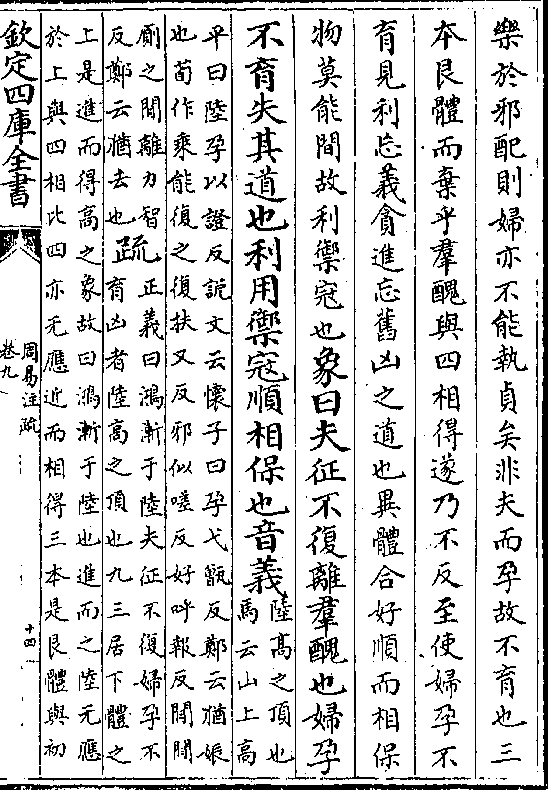 樂於邪配則婦亦不能執貞矣非夫而孕故不育也三
本艮體而棄乎羣醜與四相得遂乃不反至使婦孕不
育見利忘義貪進忘舊凶之道也異體合好順而相保
物莫能間故利禦宼也象曰夫征不復離羣醜也婦孕
不育失其道也利用禦宼順相保也音義
陸高之頂也
馬云山上高
平曰陸孕以證反說文云懷子曰孕弋甑反鄭云猶娠
也荀作乘能復之復扶又反邪似嗟反好呼報反間閒
廁之間離力智
反鄭云猶去也
疏
正義曰鴻漸于陸夫征不復婦孕不
育凶者陸高之頂也九三居下體之
上是進而得高之象故曰鴻漸于陸也進而之陸无應
於上與四相比四亦无應近而相得三本是艮體與初
欽定四庫全書
周易注疏
卷九
十四